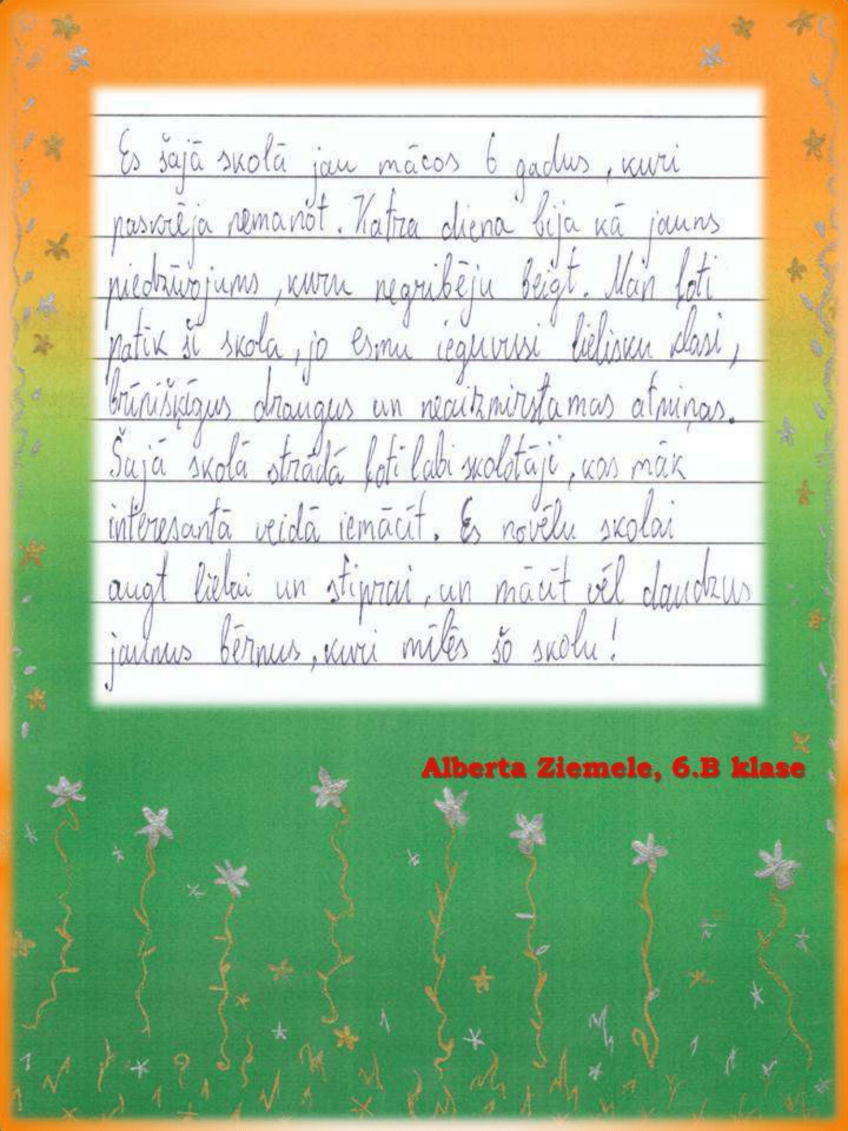 Es šajā skolā jau mācos 6 gadus, kuri
paskrēja nemanot. Katra diena bija kā jauns
piedzīvojums, kuru negribēju beigt. Man ļoti
patīk šī skola, jo esmu ieguvusi lielisku klasi,
brīnišķīgus draugus un neaizmirstamas atmiņas.
Šajā skolā strādā ļoti labi skolotāji, kas māk
interesantā veidā iemācīt. Es novēlu skolai
augt lielai un stiprai, un mācīt vēl daudzus
jaunus bērnus, kuri mīlēs šo skolu!
Alberta Ziemele, 6.B klase